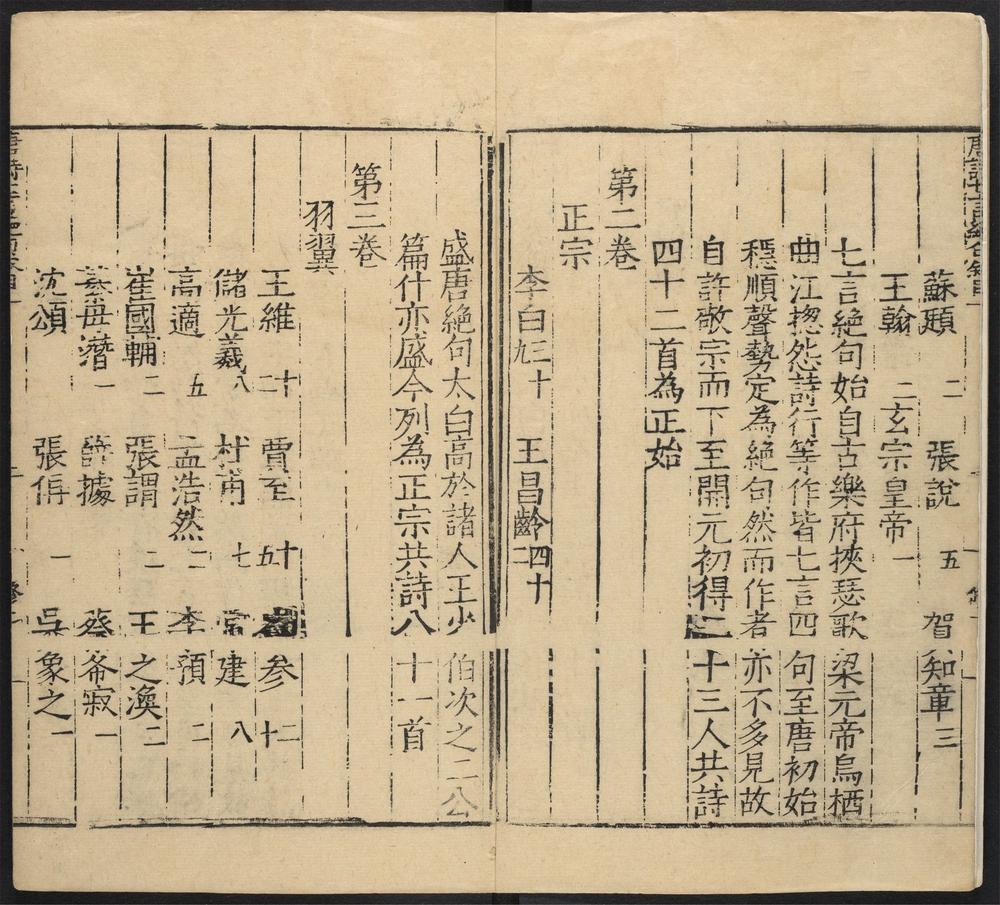 蘇頲 二 張說 五 賀知章 三
王翰 二 玄宗皇帝 一
七言絕句始自古樂府挾瑟歌梁元帝烏栖
曲江揔怨詩行等作皆七言四句至唐初始
穩順聲勢定為絕句然而作者亦不多見故
自許敬宗而下至開元初得二十三人共詩
四十二首為正始
第二卷
正宗
李白 三十九 王昌齡 四十二
盛唐絕句太白高於諸人王少伯次之二公
篇什亦盛今列為正宗共詩八十一首
第三卷
羽翼
王維 十二 賈至 十五 岑參 十二
儲光羲 八 杜甫 七 常建 八
高適 五 孟浩然 二 李頎 二
崔國輔 二 張謂 二 王之渙 二
綦毋潛 一 薛據 蔡希寂 一
沈頌 張偁 一 吳象之 一